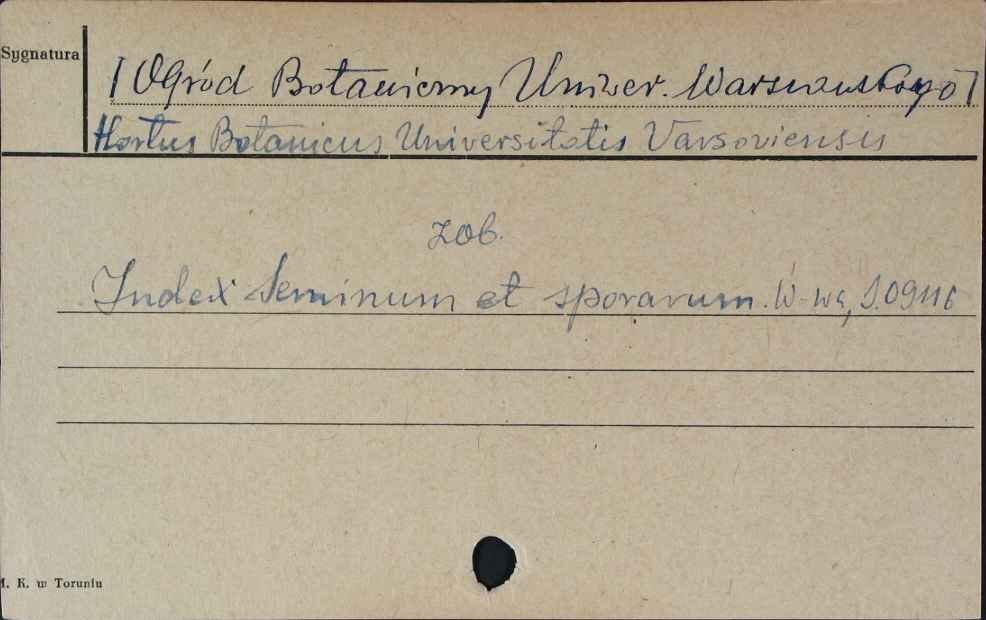 Sygnatura
[Ogród Botaniczny Uniwer. Warszawskiego]
Hortus Botanicus Universitatis Varsoviensis
zob.
Index Seminum et sporarum. W-wa, S.09116
M. K. w Toruniu